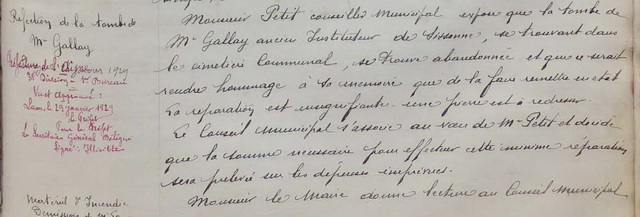 Réfection de la tombe de
Mr Gallay
Préfecture de l'Aisne
2e Division - 2e Bureau
Vu et Approuvé :
Laon, le 29 janvier 1929
le Préfet
Pour le Préfet
Le Secrétaire Général Délégué
Signé : Illisible
Matériel d'Incendie
Monsieur Petit conseiller Municipal expose que la tombe de
Mr Gallay ancien Instituteur de Sissonne, se trouvant dans
le cimetière Communal, se trouve abandonnée et que ce serait
rendre hommage à sa mémoire que de la faire remettre en état
La réparation est insignifiante une pierre est à redresser.
Le Conseil Municipal s'associe au vœu de Mr Petit et décide
que la somme nécessaire pour effectuer cette minime réparation
sera prélevée sur les dépenses imprévues.
Monsieur le Maire donne lecture au Conseil Municipal